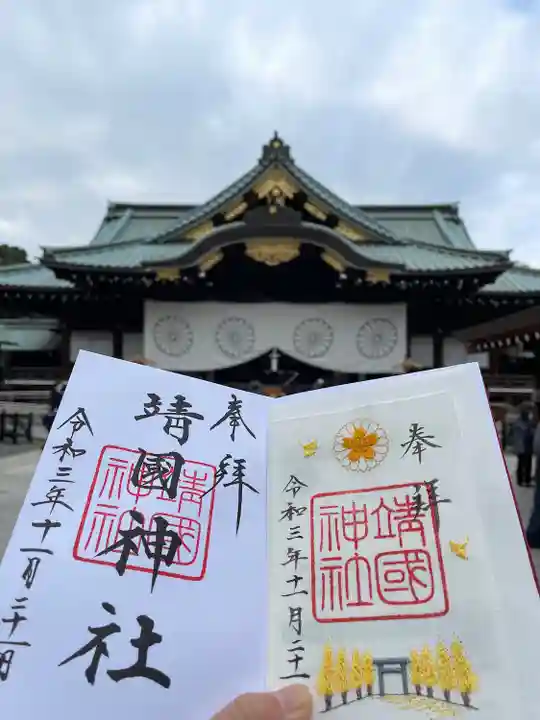 奉拝
靖國神社
靖國神社
令和三年十一月二十一日
奉拝
靖國神社
令和三年十一月二十一